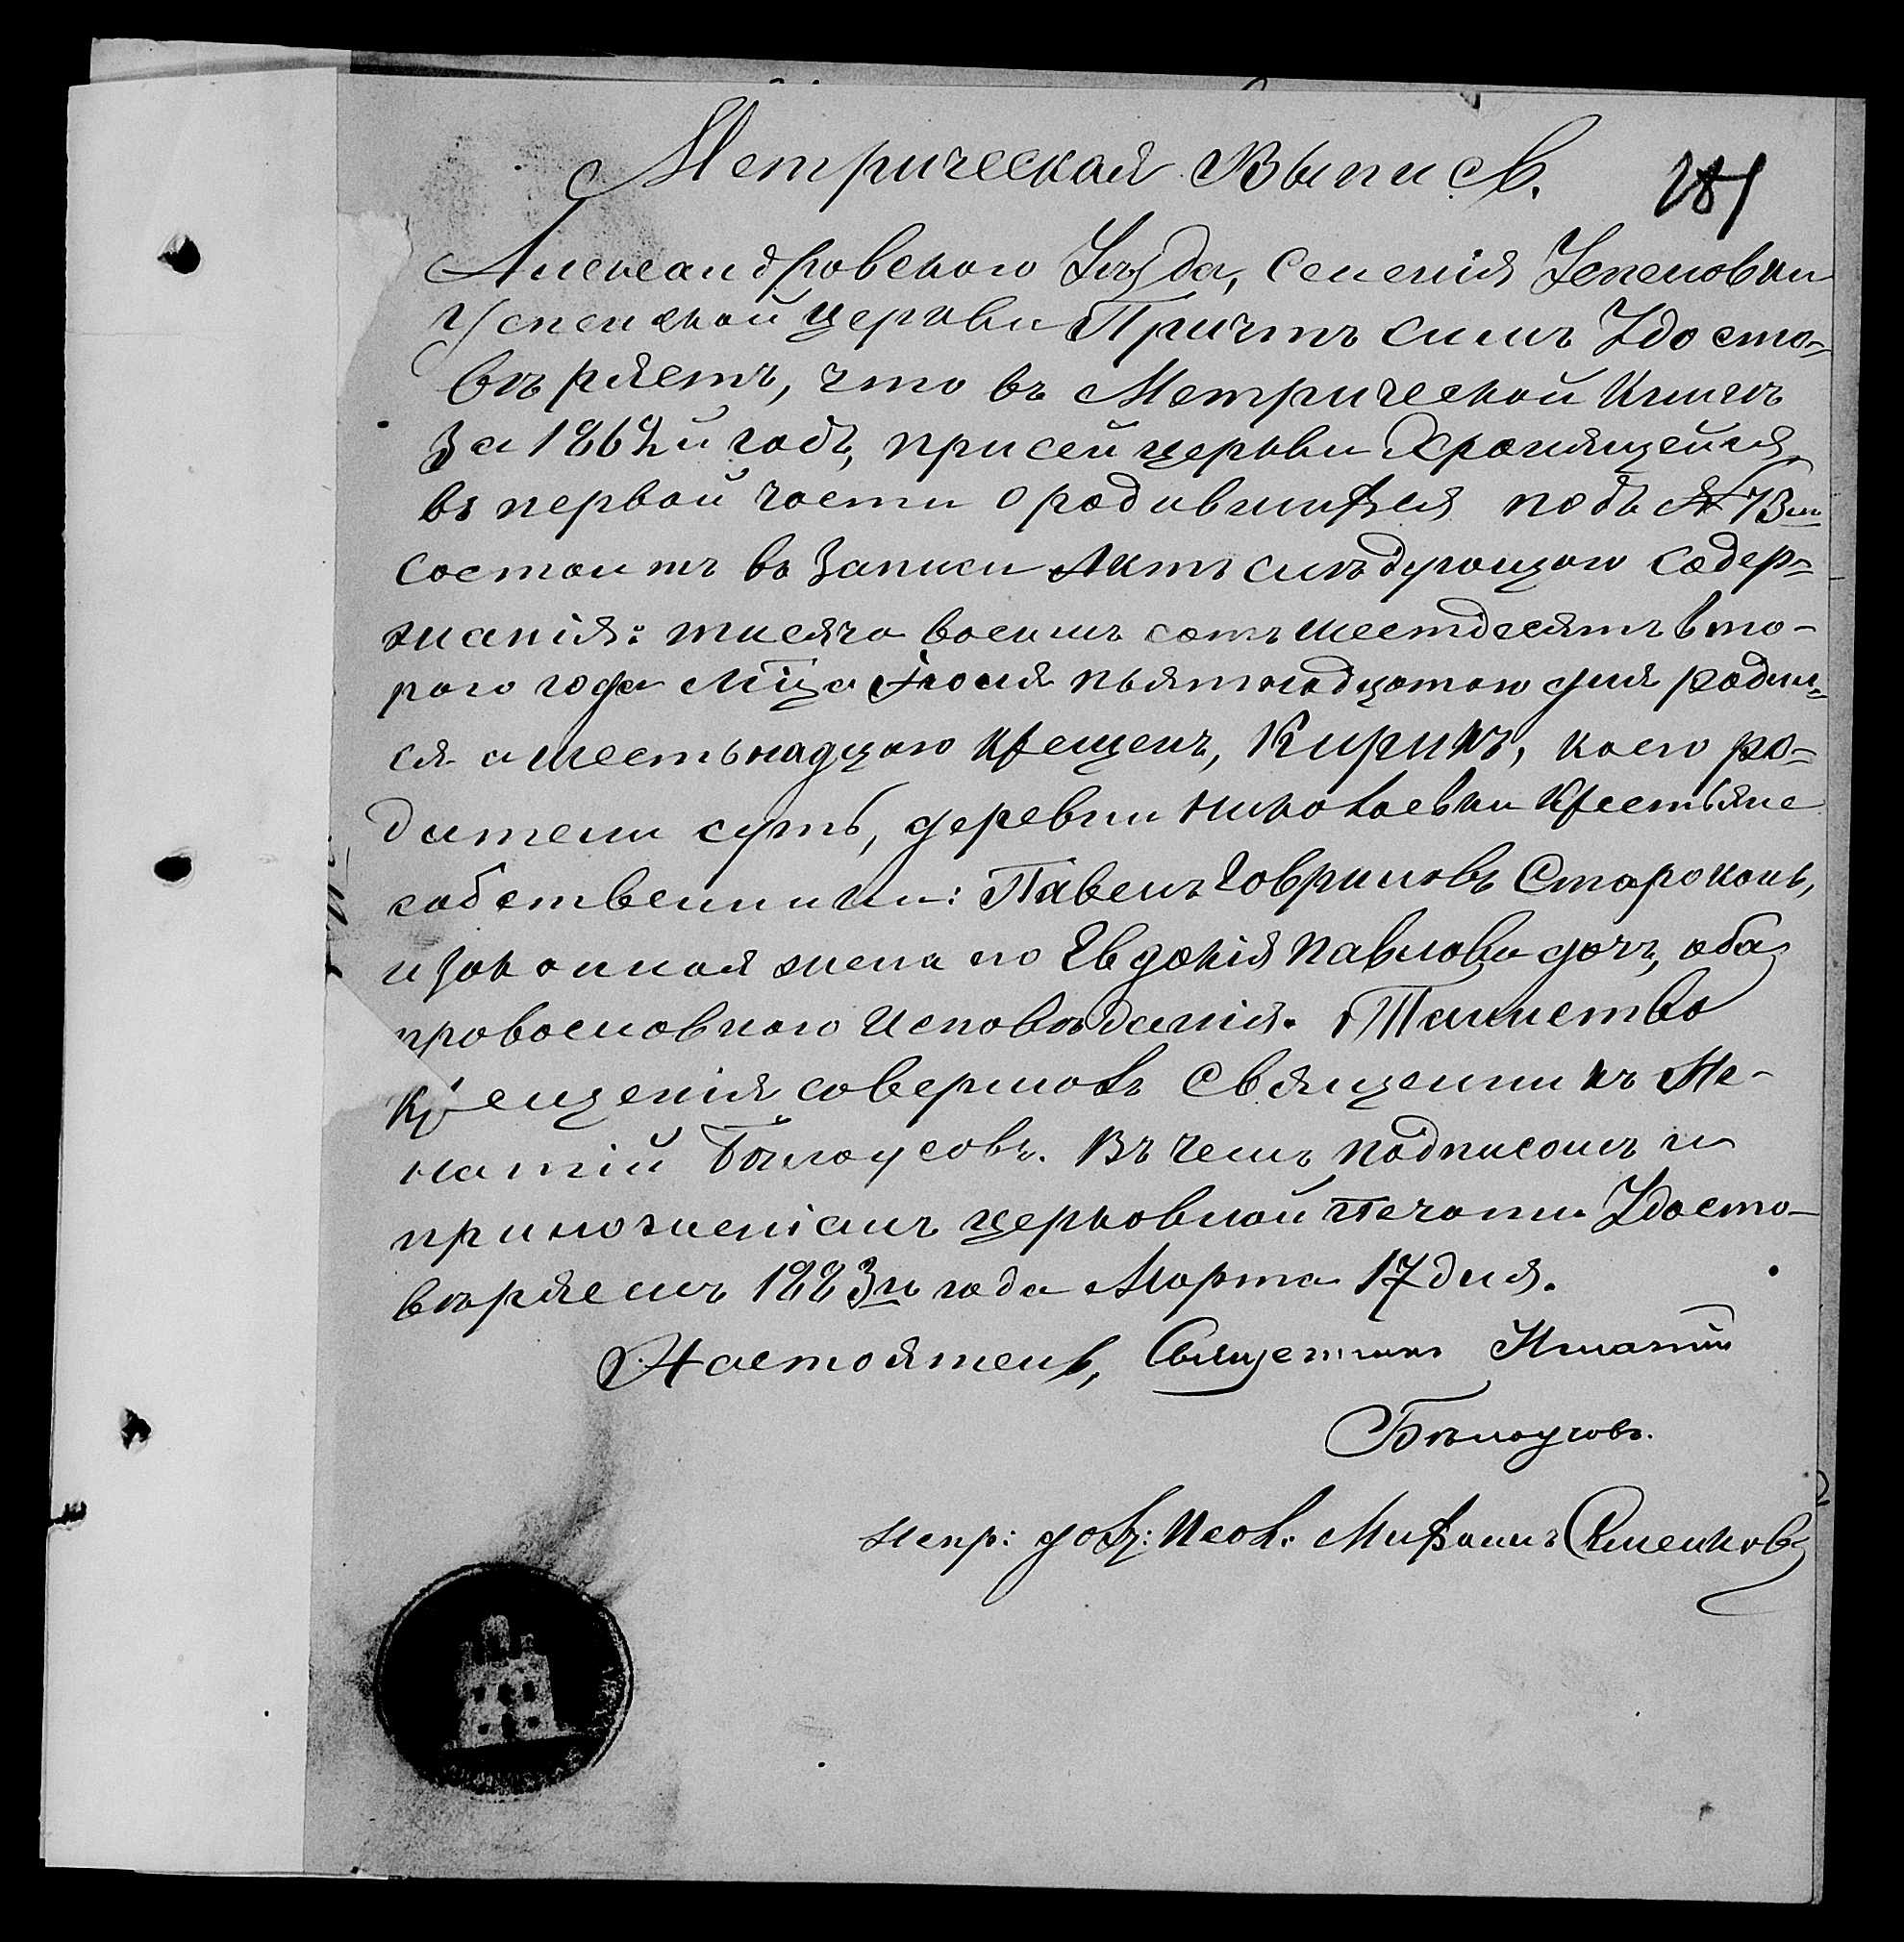 Метрическая Выпись.
181
Александровского Уѣзда, селенія Успеновки
Успенской церкви Причтъ симъ Удосто-
вѣряетъ, что въ Метрической Книгѣ
За 1862й годъ, при сей церкви Хранящейся
въ первой части о родившихся подъ № 73мъ
состоитъ въ Записи Актъ слѣдующаго содер-
жанія: тисяча восемъ сотъ шестдесятъ вто-
раго года Мца Іюля пьятнадцатаго дня родил-
ся а шестьнадцаго крещенъ, Кирикъ, коего ро-
дители суть, деревни Николаевки Крестьяне
собственники: Павелъ Говриловъ Староконь,
и Законная жена его Евдокія Павлова дочь, оба
провославнаго Исповѣданія. Таинство
Крещенія совершалъ Священникъ Иг-
натій Бѣлоусовъ. Въ чемъ подписомъ и
приложеніемъ церковной Печати Удосто-
вѣряемъ 1883го года Марта 17 дня.
Настоятель, Священникъ Игнатій
Бѣлоусовъ.
Испр: долж: Псал: Мифодій